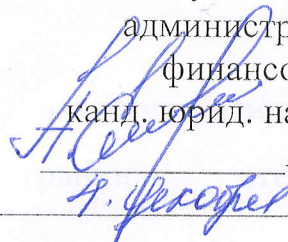 администр
финансо
канд. юрид. на
4. декабря